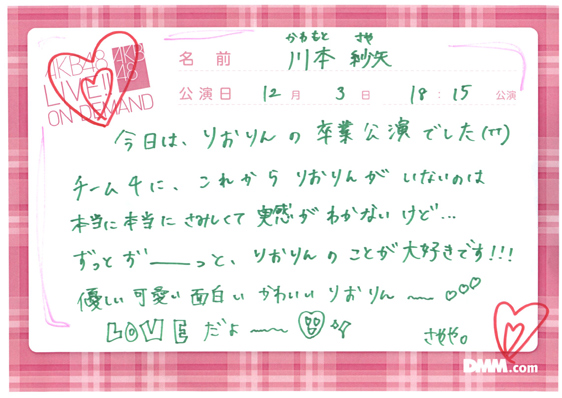 AKB48
LIVE!!
ON DEMAND
AKB
48
かわもと さや
名前 川本 紗矢
公演日 12月 3日 18:15 公演
今日は、りおりんの卒業公演でした(TT)
チーム4に、これからりおりんがいないのは
本当に本当にさみしくて実感がわかないけど…
ずっとずーーっと、りおりんのことが大好きです!!!
優しい可愛い面白いかわいいりおりん〜♡♡♡
LOVEだよ〜
さやや。
DMM.com